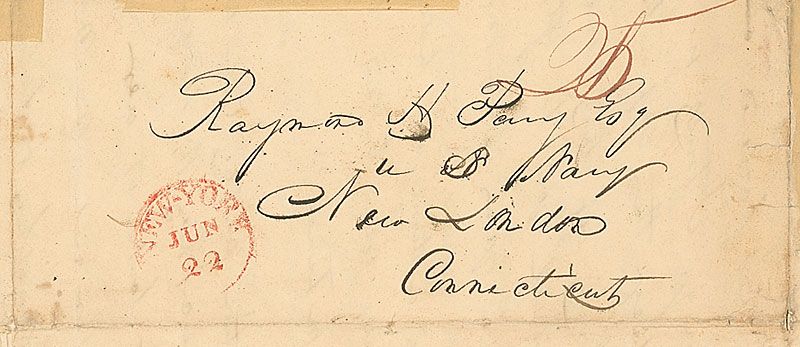 Raymond H Perry Esq
U S Navy
New London
Connecticut
NEW-YORK
JUN
22